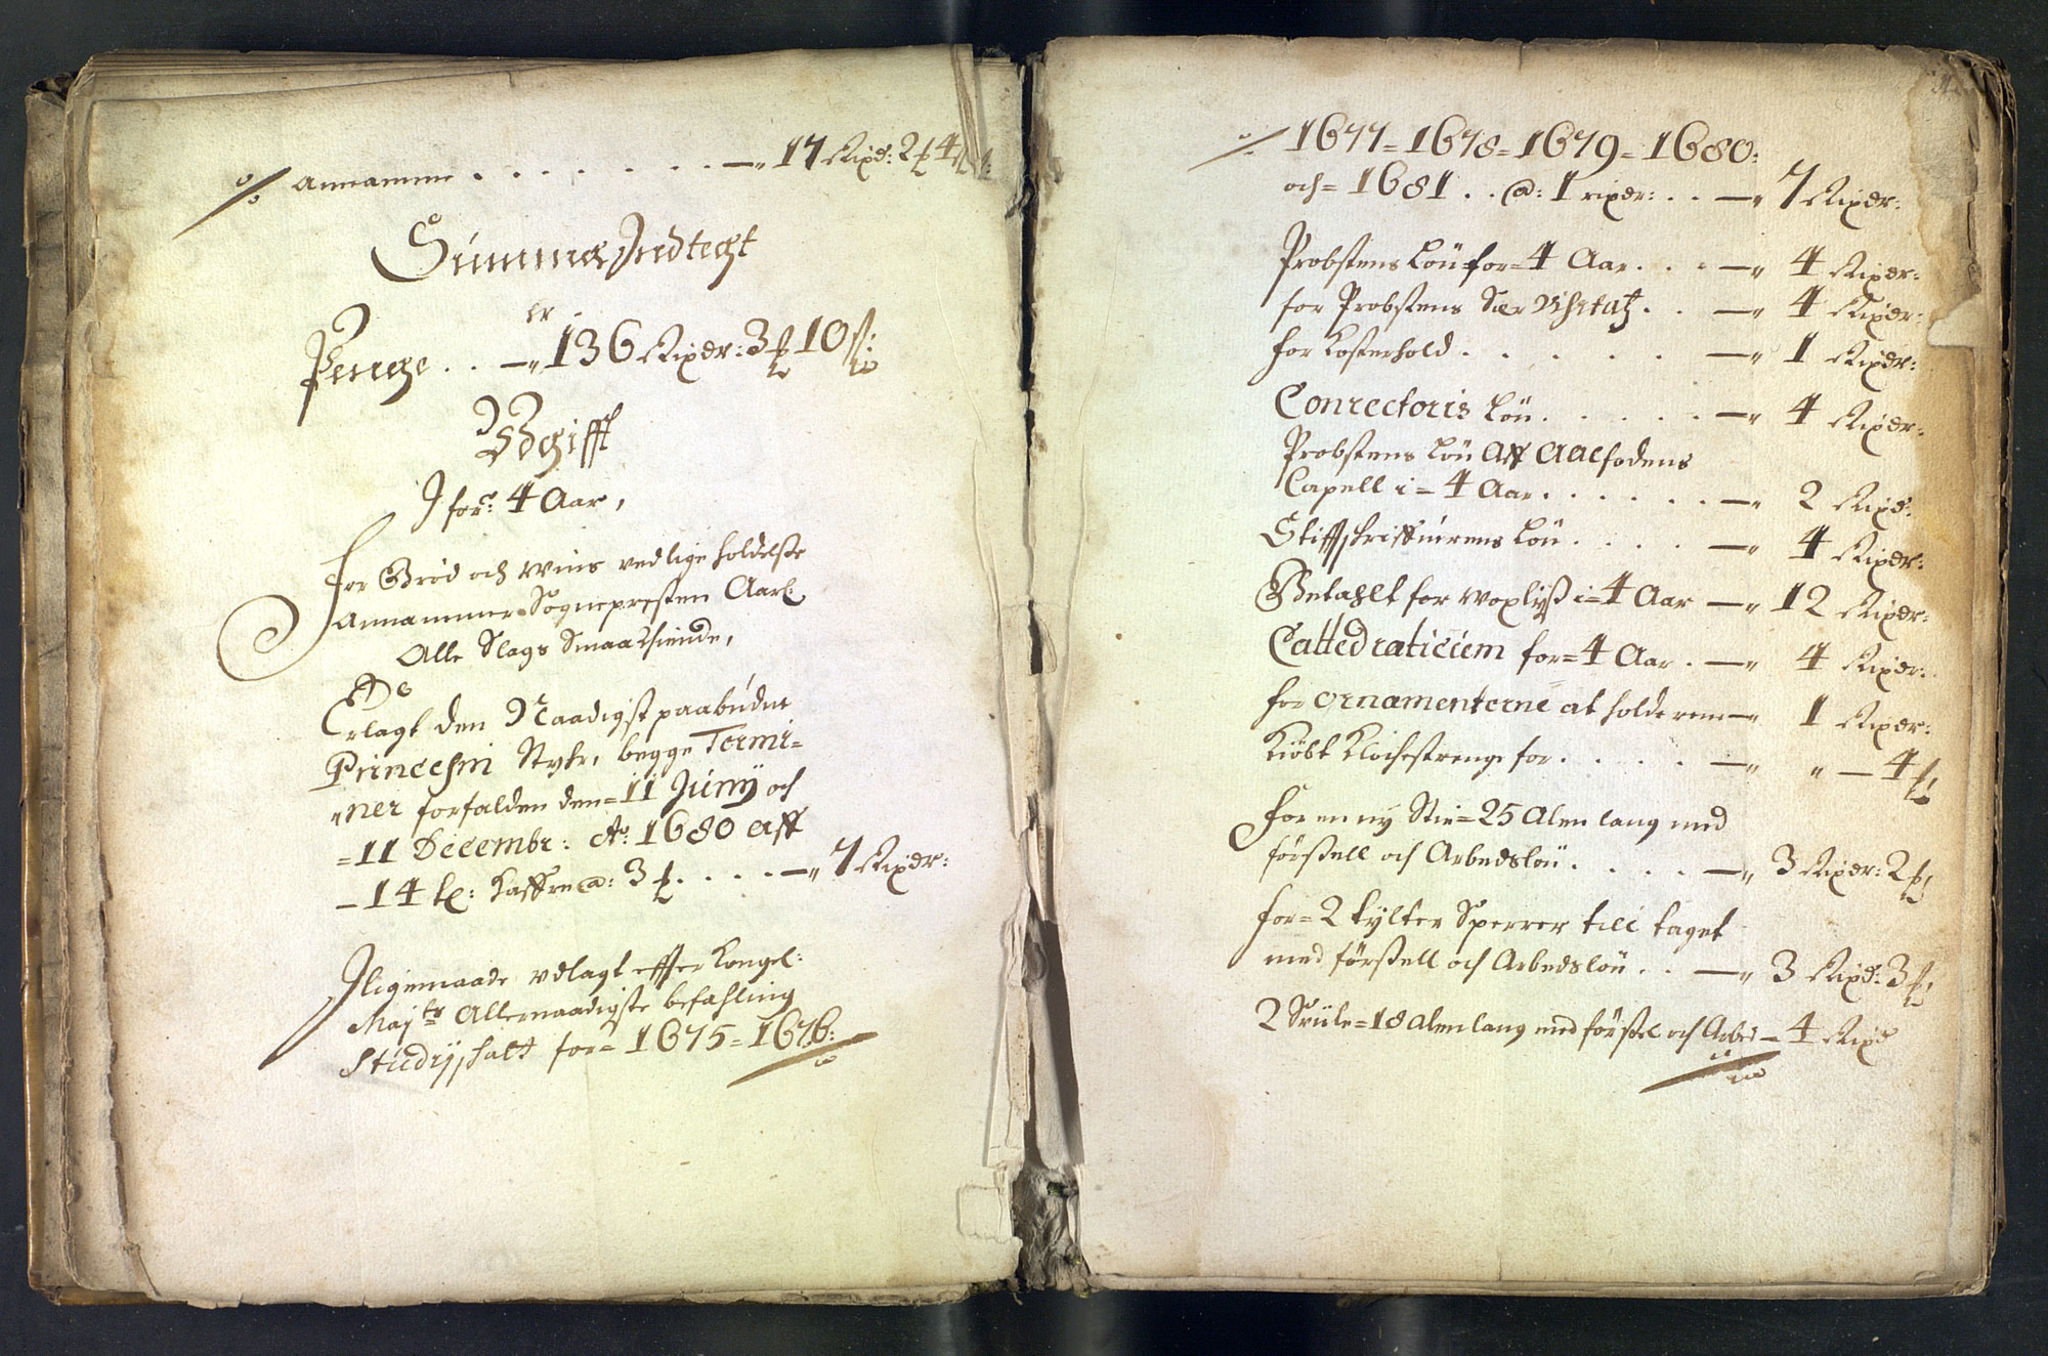 annamme . . . . . . . — 17 Rixd: 2 ƒ 4 ß:
Summa Indtecht
er
Penge . . — 136 Rixdr: 3 ƒ 10 ß:
Vdgifft
I forᵉ: 4 Aar,
For Brød och Wiins vedlige holdelse
Annammer Sognepresten Aarl:
Alle Slags Smaa Thiende,
Erlagt den Naadigst paabudne
Princesin Styhr, begge Termi=
ner forfalden den = 11 Junij och
= 11 Decembr: Ao: 1680 aff
– 14 lє: Kaffue @: 3 ƒ . . . . — 7 Rixdr:
I ligemaade vdlagt effter Kongel:
Majts Allernaadigste befahling
Studij skatt for = 1675 = 1676:
1677 = 1678 = 1679 = 1680:
och = 1681 . . @: 1 rixdr: . . — 7 Rixdr:
Probstens Løn for = 4 Aar . . . — 4 Rixdr:
for Probstens Sær . . — 4 Rixdr:
for Kosterhold . . . . . . — 1 Rixdr:
Conrectoris Løn . . . . . — 4 Rixdr:
Probstens Løn Aff Aalfodens
Capell i = 4 Aar . . . . . . — 2 Rixd:
Stiffskriffuerens Løn . . . . — 4 Rixdr:
Betahlt for Woxlyß i = 4 Aar — 12 Rixdr:
Cattedraticum for = 4 Aar . — 4 Rixdr:
for Ornamenterne at holde reene — 1 Rixdr:
Kiøbt Klochestrenge for . . . . . — " — 4 ƒ
For en ny Stie = 25 Alen lang med
førßell och Arbedsløn . . . . . — 3 Rixdr: 2 ƒ
For = 2 tylter Sperrer till taget
med førßell och Arbedsløn . . — 3 Rixd: 3 ƒ
2 Suüle = 18 alen lang med førßel och Arbed — 4 Rixd